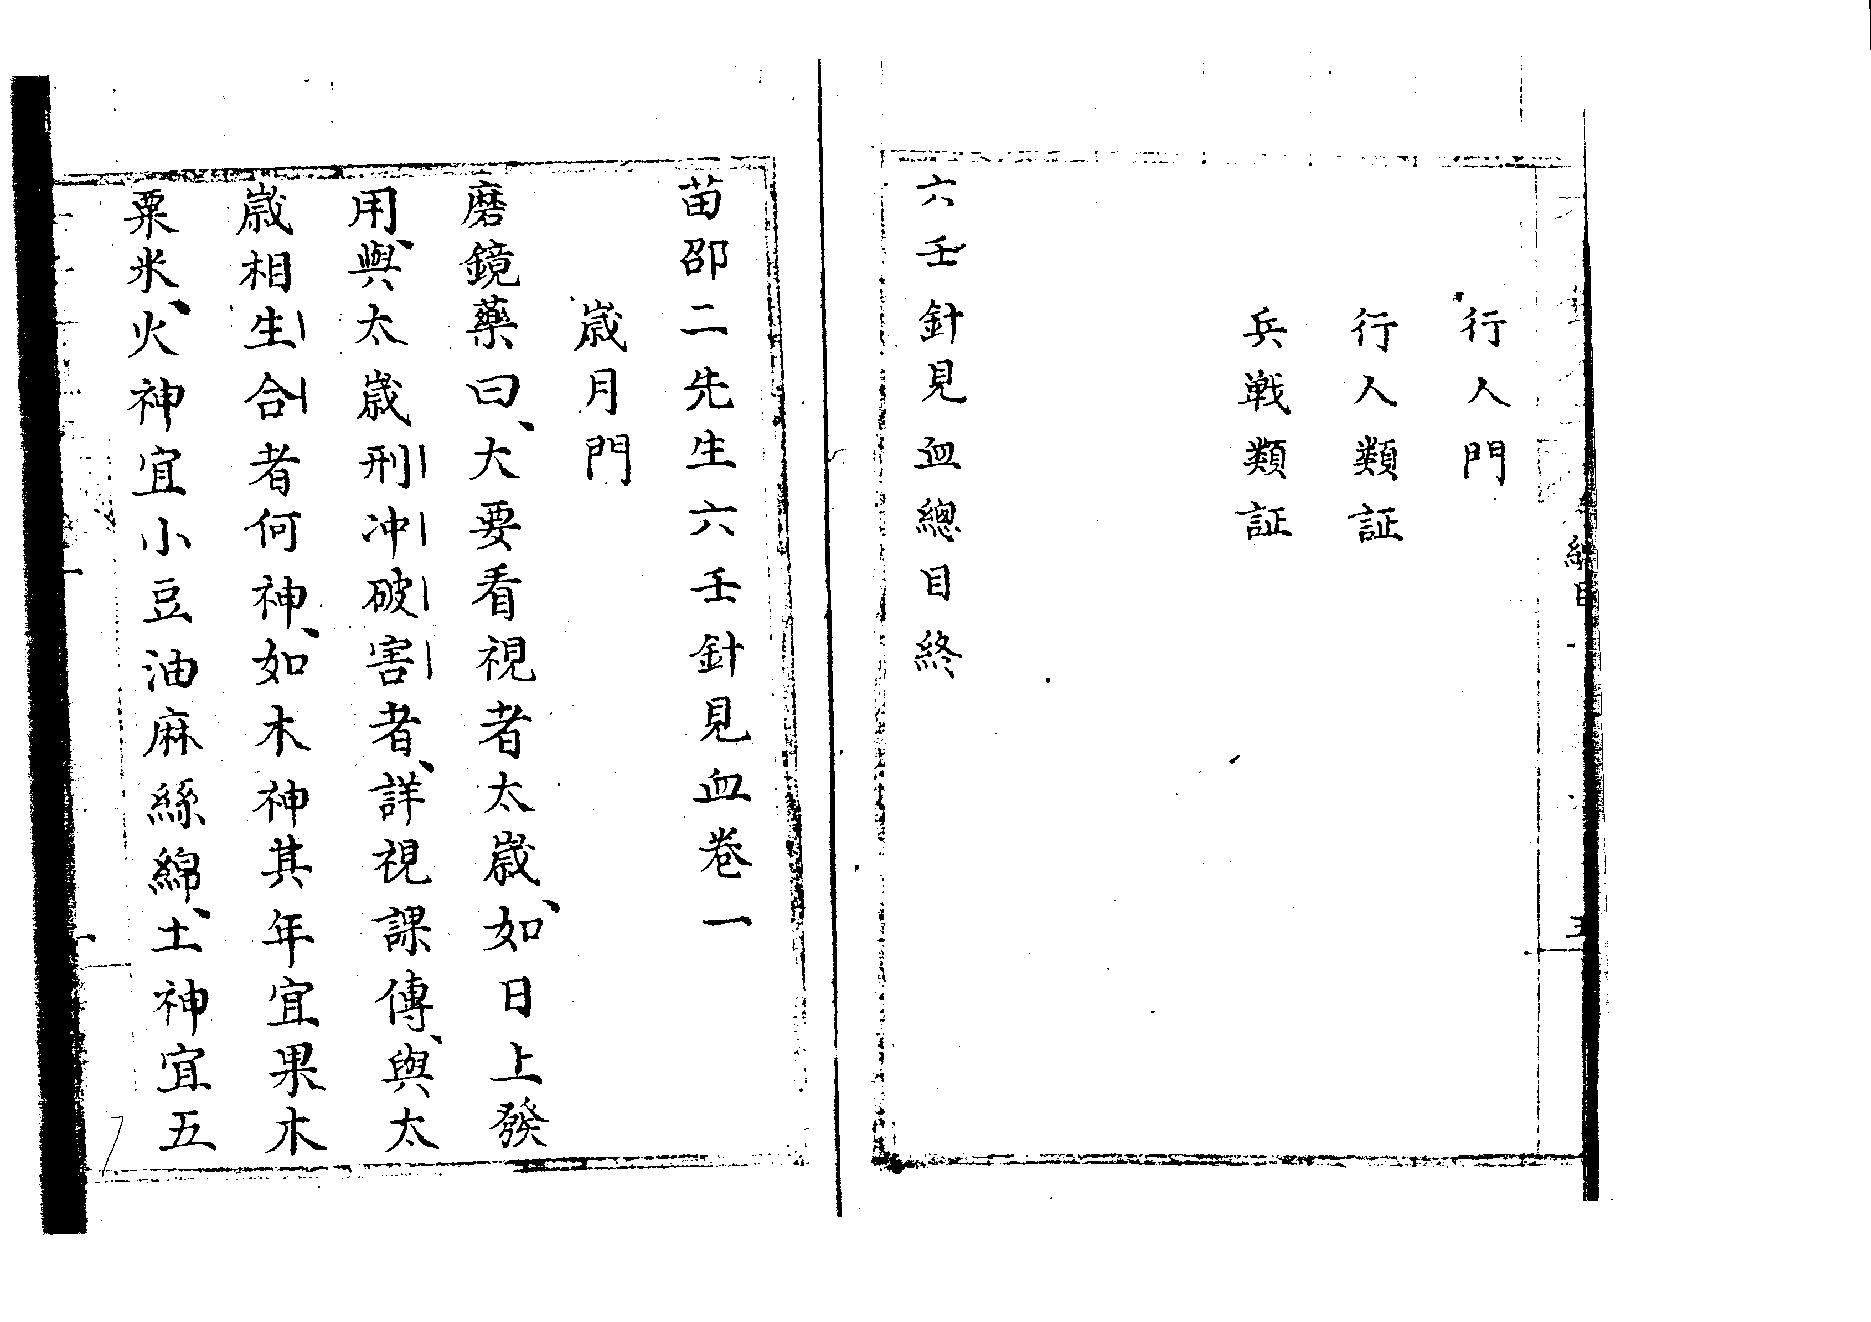 行人門
行人類証
兵戦類証
六壬針見血總目終
苗邵二先生六壬針見血卷一
歲月門
磨鏡藥曰、大要看視者太歲、如日上發
用、與太歲刑冲破害者、詳視課傳、與太
歲相生合者何神、如木神其年宜果木
粟米、火神宜小豆油麻絲綿、土神宜五